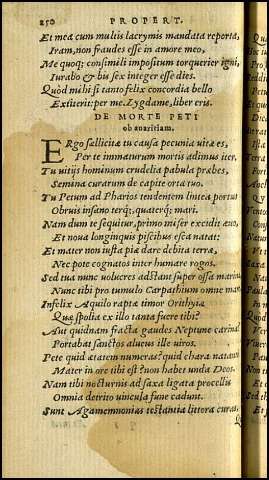 250 PROPERT.
Et mea cum multis lacrymis mandata reporta,
Iram, non fraudes esse in amore meo,
Me quoq; consimili impositum torquerier igni,
Iurabo & bis sex integer esse dies.
Quòd mihi si tanto felix concordia bello
Extiterit: per me. Lygdame, liber eris.
DE MORTE PETI
ob auaritiam.
ERgo sollicitæ tu causa pecunia vitæ es,
Per te immaturum mortis adimus iter,
Tu vitijs hominum crudelia pabula præbes,
Semina curarum de capite orta tuo.
Tu Petum ad Pharios tendentem lintea portus
Obruis insano terq;, quaterq; mari.
Nam dum te sequitur, primo miser excidit æuo,
Et noua longinquis piscibus esca natat:
Et mater non iusta piæ dare debita terræ,
Nec pote cognatos inter humare rogos.
Sed tua nunc volucres adstant super ossa marinæ
Nunc tibi pro tumulo Carpathium omne mare
Infelix Aquilo raptæ timor Orithyiæ
Quæ spolia ex illo tanta fuere tibi?
Aut quidnam fracta gaudes Neptune carina?
Portabat sanctos alueus ille viros.
Pete quid ætatem numeras? quid chara natanti
Mater in ore tibi est? non habet vnda Deos.
Nam tibi nocturnis ad saxa ligata procellis
Omnia detrito vincula fune cadunt.
Sunt Agamemnonias testantia littora curas,